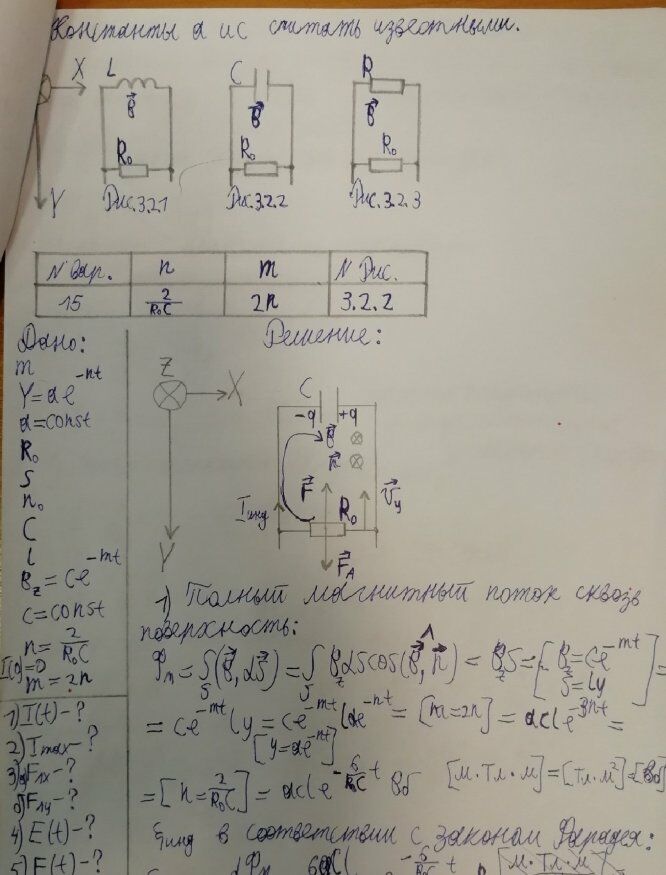 Константы α и c считать известными.
X L C R
B⃗ B⃗ B⃗
R₀ R₀ R₀
Y Рис.3.2.1 Рис.3.2.2 Рис.3.2.3
N Вар. n m N Рис.
15 2/R₀C 2n 3.2.2
Дано:
m
Y=αe^-nt
α=const
R₀
S
n₀
C
l
B_z=ce^-mt
c=const
n=2/R₀C
I(0)=0
m=2n
1) I(t)-?
2) Imax-?
4) E(t)-?
5) F(t)-?
Решение:
Z X Y
C
-q +q
B⃗
n⃗
Iинд F⃗ R₀ V⃗y
F⃗A
1) Полный магнитный поток сквозь
поверхность:
Фп = ∫S(B⃗, dS⃗) = ∫S B_z dS cos(B⃗,^n⃗) = B_z S = [B_z=ce^-mt S=ly] =
= ce^-mt ly = ce^-mt lαe^-nt = [m=2n] = αcle^-3nt =
[y=αe^-nt]
= [n=2/R₀C] = αcle^-(6/R₀C)t Вб [м·Тл·м]=[Тл·м²]=[Вб]
ξинд в соответствии с законом Фарадея: